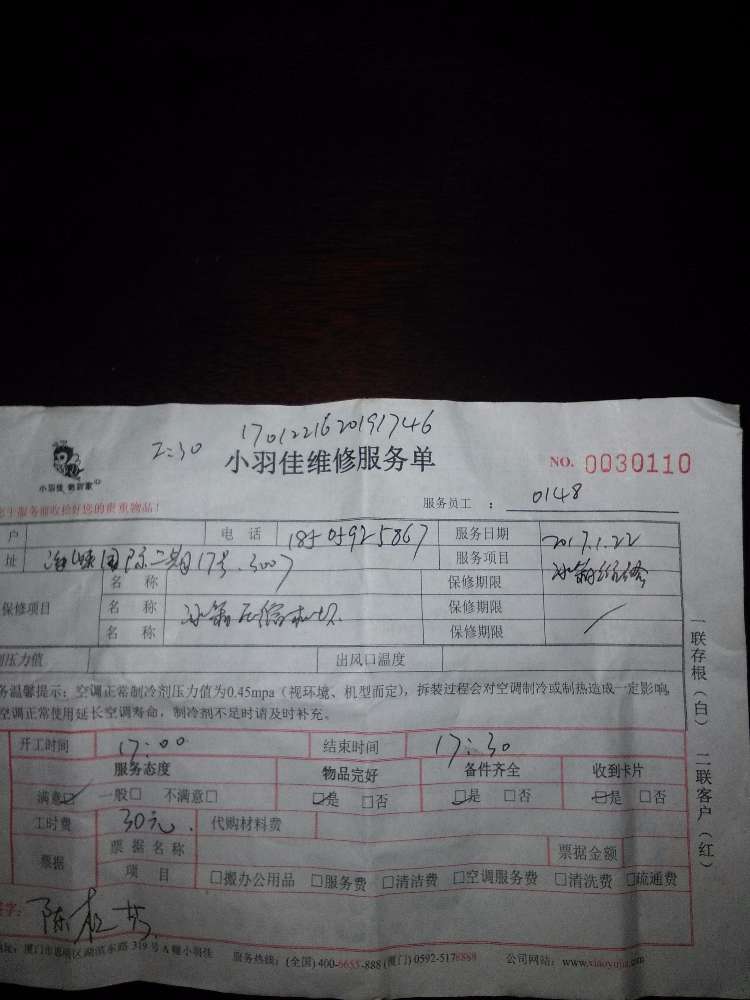 17012216 20191746
2:30
小羽佳维修服务单
NO. 0030110
小羽佳 管到家
服务前收捡好您的贵重物品!
服务员工 : 0148
户 电 话 18505925867 服务日期 2017.1.22
址 国际二期17号.3007 服务项目 冰箱维修
保修项目 名 称 保修期限
名 称 冰箱压缩机坏 保修期限
名 称 保修期限
压力值 出风口温度
温馨提示:空调正常制冷剂压力值为0.45mpa(视环境、机型而定),拆装过程会对空调制冷或制热造成一定影响,
空调正常使用延长空调寿命,制冷剂不足时请及时补充。
开工时间 17:00 结束时间 17:30
服务态度 物品完好 备件齐全 收到卡片
满意☑ 一般□ 不满意□ ☑是 □否 ☑是 □否 ☑是 □否
工时费 30元. 代购材料费
票据 票据名称 票据金额
项 目 □搬办公用品 □服务费 □清洁费 □空调服务费 □清洗费 □疏通费
签字:陈
地址:厦门市思明区湖滨东路319号A幢小羽佳 服务热线:(全国)400-6655-888(厦门)0592-5178868 公司网站:www.xiaoyujia.com
一联存根(白) 二联客户(红)